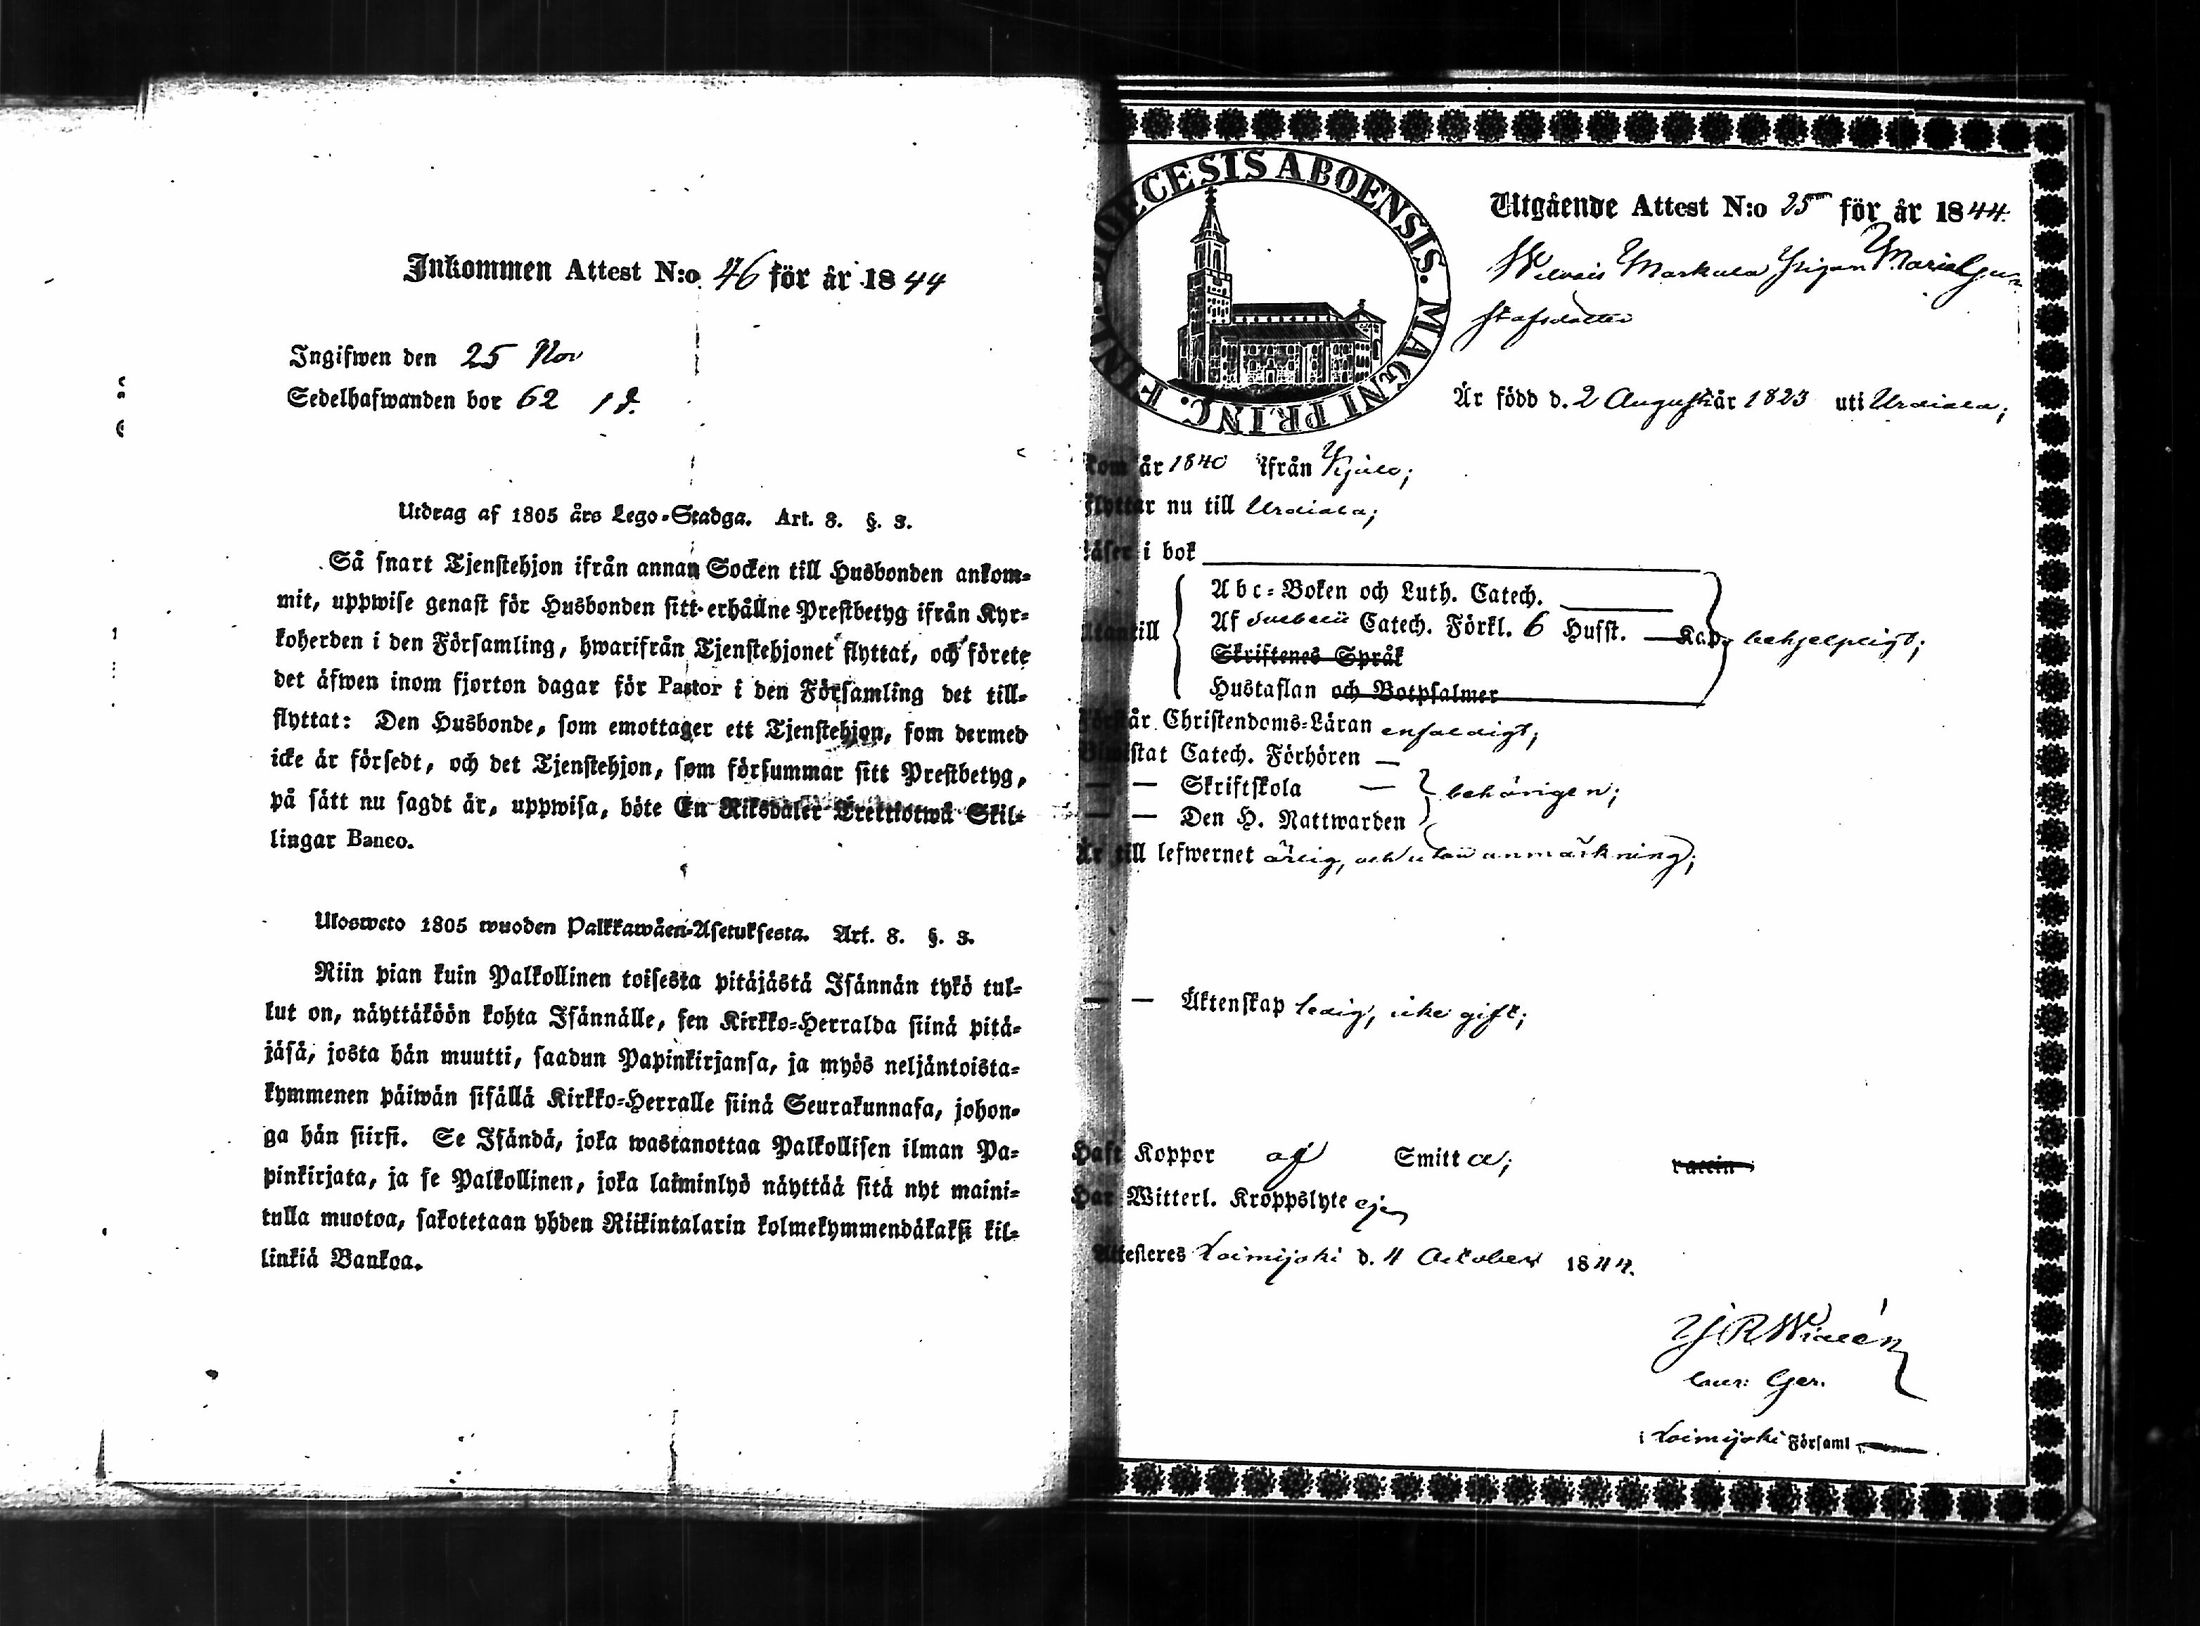 Inkommen Attest N:o 46 för år 1844
Ingifwen den 25 Nov
Sedelhafwanden bor 62
Utdrag af 1805 års Lego-Stadga. Art. 8. §. 3.
Så snart Tjenstehjon ifrån annan Socken till Husbonden ankom-
mit, uppwise genast för Husbonden sitt erhållne Prestbetyg ifrån Kyr-
koherden i den Församling, hwarifrån Tjenstehjonet flyttat, och förete
det äfwen inom fjorton dagar för Pastor i den Församling det till-
flyttat: Den Husbonde, som emottager ett Tjenstehjon, som dermed
icke är försedt, och det Tjenstehjon, som försummar sitt Prestbetyg,
på sätt nu sagdt är, uppwisa, böte En Riksdaler Trettiotwå Skil-
lingar Banco.
Ulosweto 1805 wuoden Palkkawäen-Asetuksesta. Art. 8. §. 3.
Niin pian kuin Palkollinen toisesta pitäjästä Isännän tykö tul-
lut on, näyttäköön kohta Isännälle, sen Kirkko-Herralda siinä pitä-
jäsä, josta hän muutti, saadun Papinkirjansa, ja myös neljäntoista-
kymmenen päiwän sisällä Kirkko-Herralle siinä Seurakunnasa, johon-
ga hän siirsi. Se Isändä, joka wastanottaa Palkollisen ilman Pa-
pinkirjata, ja se Palkollinen, joka laiminlyö näyttää sitä nyt maini-
tulla muotoa, sakotetaan yhden Riikintalarin kolmekymmendäkaksi kil-
linkiä Bankoa.
DIOECESIS ABOENSIS. MAGNI PRINC. FINL.
Utgående Attest N:o 25 för år 1844.
Markula Pigan Maria Gu-
stafsdotter
Är född d. 2 Augusti år 1823 uti Urdiala;
kom år 1840 ifrån Kjulo;
flyttar nu till Urdiala;
läser i bok
Utantill
Abc-Boken och Luth. Catech.
Af Svebelii Catech. Förkl. 6 Hufst. — Kap. behjelpligt;
Skriftenes Språk
Hustaflan och Botpsalmer
Förstår Christendoms-Läran enfaldigt;
Biwistat Catech. Förhören —
— — Skriftskola — behörigen;
— — Den H. Nattwarden
Är till lefwernet ärlig, och utan anmärkning;
— — Äktenskap ledig, icke gift;
Haft Koppor af Smitta; vaccin
Har Witterl. Kroppslyte ej
Attesteres Loimijoki d. 4 October 1844.
i Loimijoki Församl